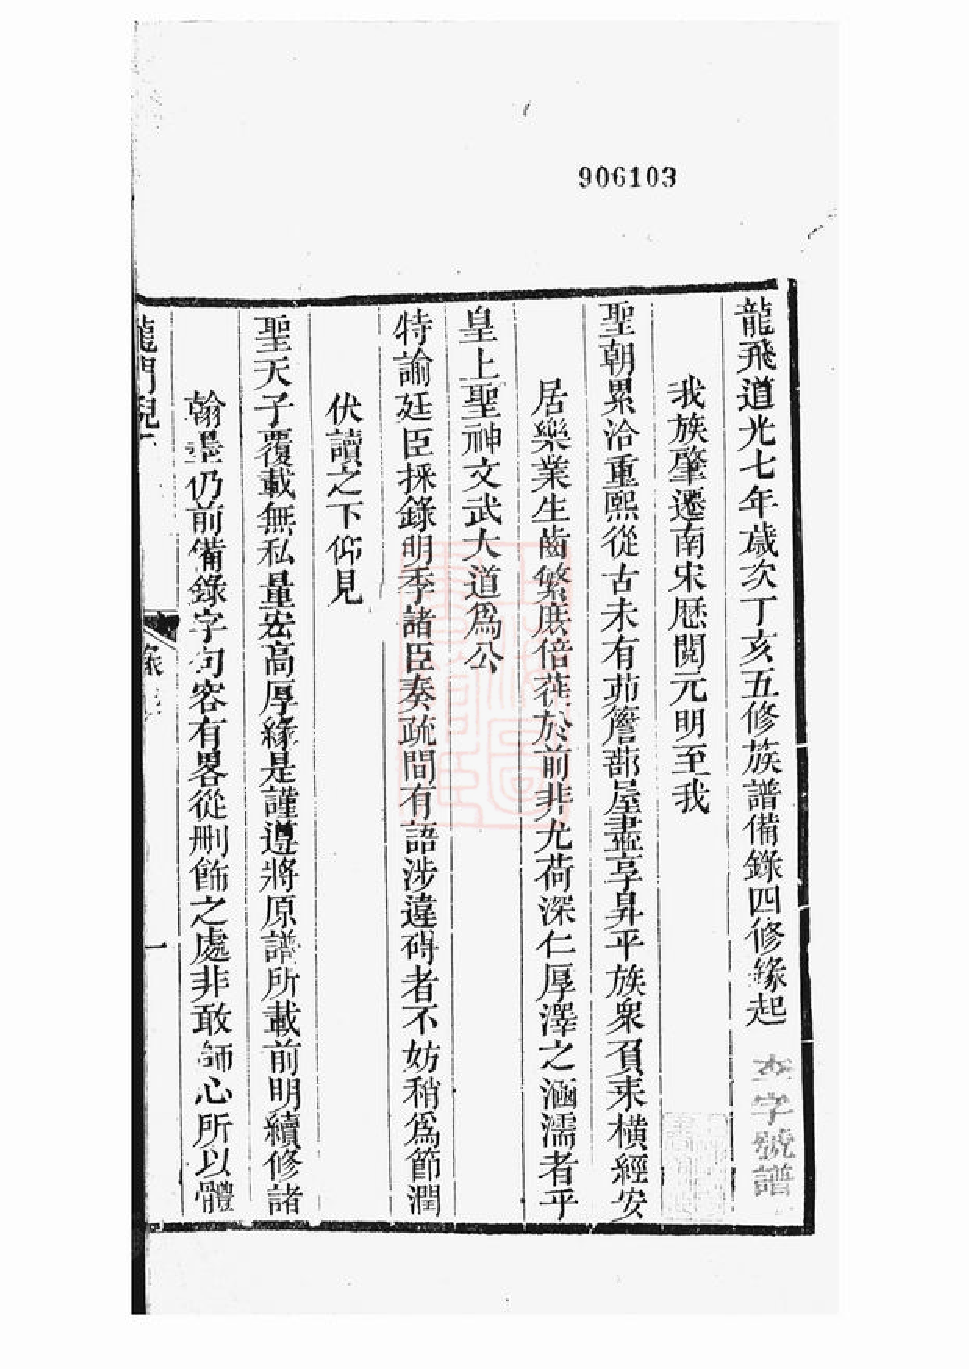 906103
龍飛道光七年歲次丁亥五修族譜備錄四修緣起
字號譜
我族肇遷南宋歷閱元明至我
聖朝累洽重熙從古未有茆簷蔀屋盡享昇平族衆負耒橫經安
居樂業生齒繁庶倍蓰於前非尤荷深仁厚澤之涵濡者乎
皇上聖神文武大道爲公
特諭廷臣採錄明季諸臣奏疏間有語涉違碍者不妨稍爲節潤
伏讀之下仰見
聖天子覆載無私量宏高厚緣是謹遵將原譜所載前明續修諸
翰墨仍前備錄字句容有畧從刪餙之處非敢師心所以體
龍門
一